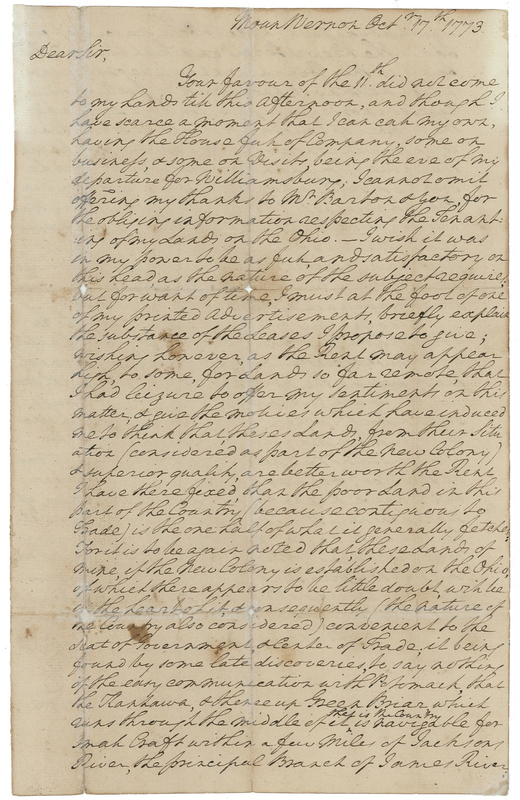 Mount Vernon Octr 17th 1773
Dear Sir,
Your favour of the 11th did not come
to my hands till this afternoon, and though I
have scarce a moment that I can call my own,
having the House full of Company, some on
business & some on Visits, being the eve of my
departure for Williamsburg; I cannot omit
offering my thanks to Mr Barton & you, for
the obliging information respecting the Tenant-
ing of my Lands on the Ohio. — I wish it was
in my power to be as full and satisfactory on
this head, as the nature of the subject requires;
but for want of time, I must at the foot of one
of my printed Advertisements, briefly explain
the substance of the Leases I propose to give;
wishing however, as the Rent may appear
high to some, for Lands so far remote, that
I had leizure to offer my sentiments on this
matter, & give the motives which have induced
me to think that these Lands, from their Situ
ation (considered as part of the new Colony)
& superior quality, are better worth the Rent
I have there fixed, than the poor Land in this
part of the Country (because contiguous to
Trade) is the one half of what it generally fetches
For it is to be again noted that, these Lands of
mine, if the New Colony is established on the Ohio,
of which there appears to be little doubt, will be
in the heart of it, & consequently (the nature of
the Country also considered) convenient to the
Seat of Government & Center of Trade, it being
found by some late discoveries, to say nothing
of the easy communication with Potomack, that
the Kanhawa, & thence up Green Briar which
runs through the middle of this New Country is navigable for
small Craft within a few Miles of Jacksons
River, the principal Branch of James River